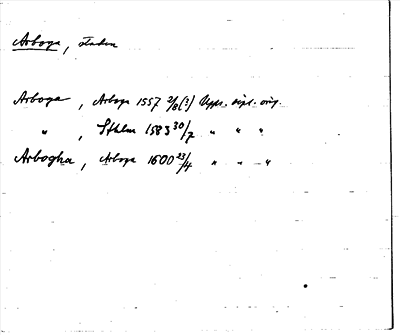 Arboga, staden
Arboga, Arboga 1557 2/8(?) Upps. dipl. orig.
" , Sthlm 1583 30/7 " " "
Arbogha, Arboga 1600 23/4 " " "